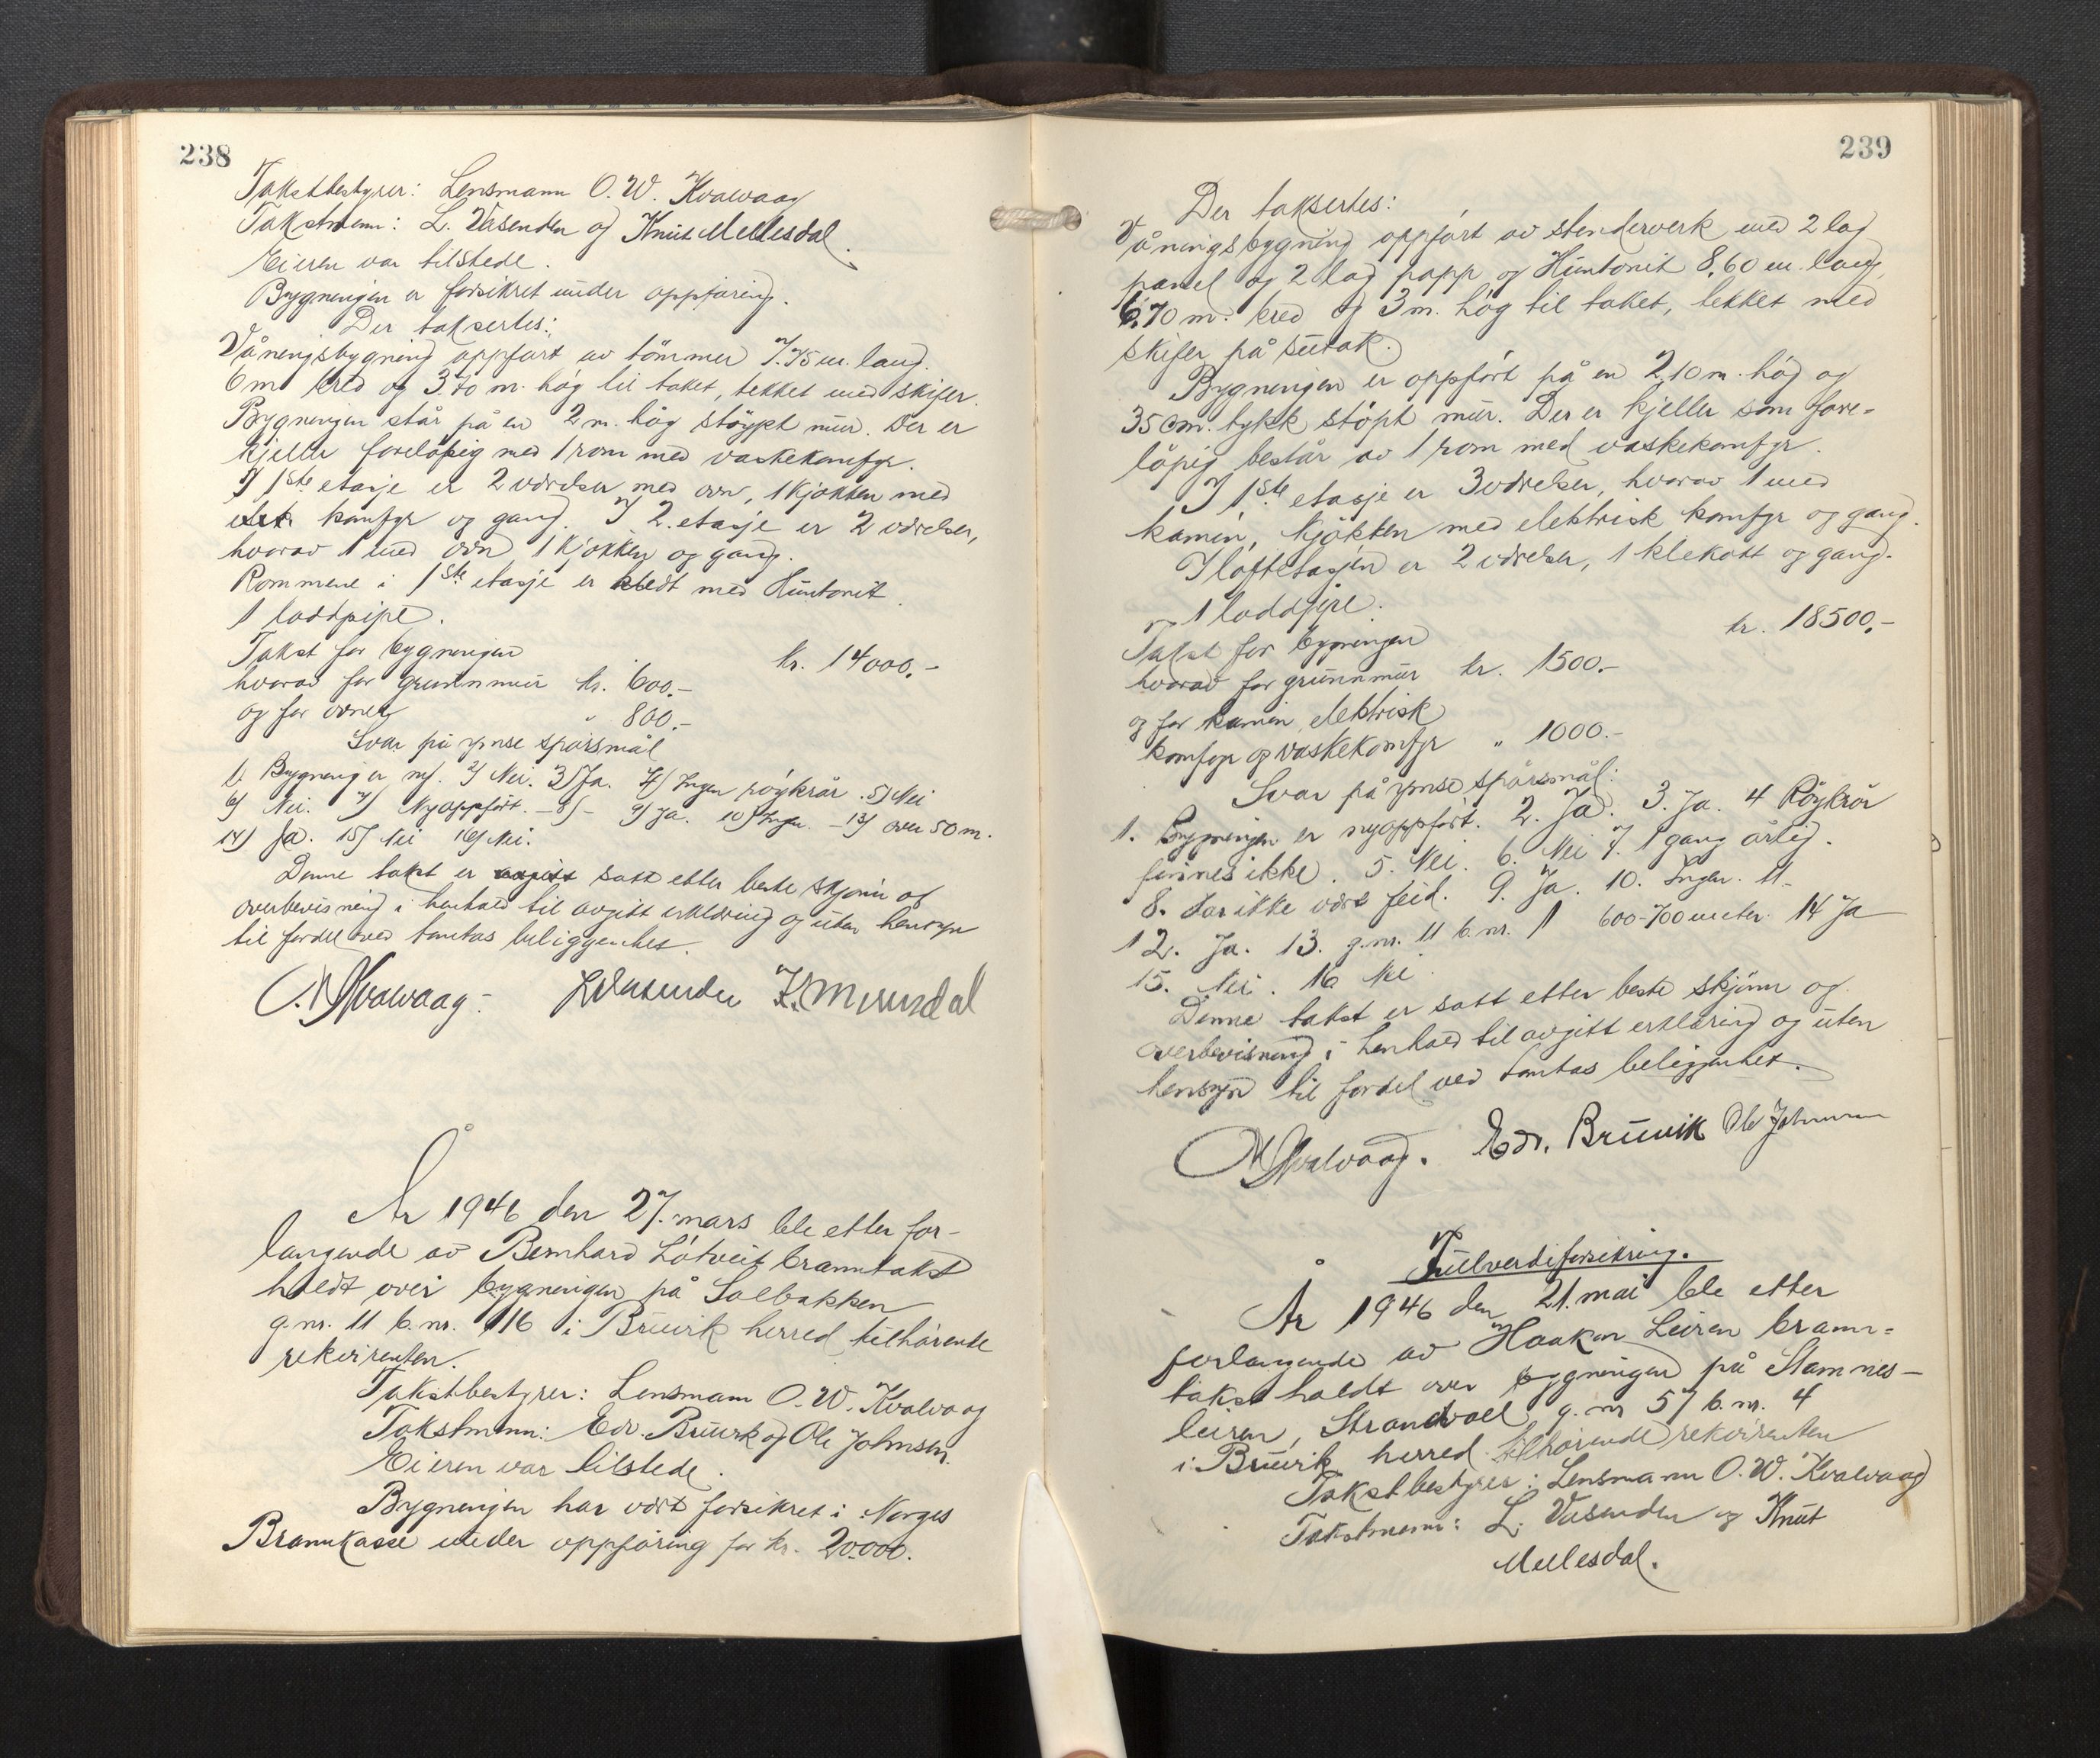 238
Takstbestyrer: Lensmann O. W. Kvalvaag
Takstmenn: L. Vasenden og Knut Mellesdal.
Eieren var tilstede.
Bygningen er forsikret under oppføring.
Der takseres:
Våningsbygning oppført av tømmer 7.75 m. lang.
6 m bred og 3.70 m. høg til taket, tekket med skifer.
Bygningen står på en 2 m. høg støypt mur. Der er
kjeller foreløbig med 1 rom med vaskekomfyr.
I 1ste etasje er 2 værelser med ovn, 1 kjøkken med
komfyr og gang. I 2. etasje er 2 værelser,
hvorav 1 med ovn 1 kjøkken og gang.
Rommene i 1ste etasje er kledt med Huntonit.
1 loddpipe.
Takst for bygningen kr. 14000.-
hvorav for grunnmur kr. 600.-
og for ovner " 800.-
Svar på ymse spørsmål
1. Bygning er ny. 2) Nei. 3) Ja. 4) Ingen røykrør. 5) Nei
6) Nei. 7) Nyoppført. - 8) - 9) Ja. 10) Ingen. - 13) over 50 m.
14) Ja. 15) Nei 16) Nei.
Denne takst er satt etter beste skjønn og
overbevisning i henhold til avgitt erklæring og uten hensyn
til fordel ved tomtas beliggenhet.
O.W. Kvalvaag - L. Vasenden K. Mellesdal
År 1946 den 27. mars ble etter for-
langende av Bernhard Løtveit branntakst
holdt over bygningen på Solbakken
g.nr. 11 b.nr. 116 i Bruvik herred tilhørende
rekvirenten.
Takstbestyrer: Lensmann O. W. Kvalvaag
Takstmenn: Edv. Bruvik og Ole Johnsen.
Eieren var tilstede.
Bygningen har vært forsikret i Norges
Brannkasse under oppføring for kr. 20.000.
239
Der takseres:
Våningsbygning oppført av stenderverk med 2 lag
panel og 2 lag papp og Huntonit 8,60 m. lang,
6.70 m. bred og 3 m. høg til taket, tekket med
skifer på sutak.
Bygningen er oppført på en 2,10 m. høg og
35 cm. tykk støpt mur. Der er kjeller som fore-
løpig består av 1 rom med vaskekomfyr.
I 1ste etasje er 3 værelser, hvorav 1 med
kamin, kjøkken med elektrisk komfyr og gang.
I loftetasjen er 2 værelser, 1 klekott og gang.
1 loddpipe.
Takst for bygningen kr. 18500.-
hvorav for grunnmur kr. 1500.-
og for kamin, elektrisk
komfyr og vaskekomfyr " 1000.-
Svar på ymse spørsmål:
1. Bygningen er nyoppført. 2. Ja. 3. Ja. 4 Røykrør
finnes ikke. 5. Nei. 6. Nei 7. 1 gang årlig.
8. Har ikke vært feid. 9. Ja. 10. Ingen. 11-
12. Ja. 13. g.nr. 11 b.nr. 1 600-700 meter. 14 Ja
15. Nei. 16 Nei.
Denne takst er satt etter beste skjønn og
overbevisning i henhold til avgitt erklæring og uten
hensyn til fordel ved tomtas beliggenhet.
O.W. Kvalvaag. Edv. Bruvik Ole Johnsen
Fullverdiforsikring.
År 1946 den 21. mai ble etter
forlangende av Haakon Leiren brann-
takst holdt over bygningen på Stamnes-
leiren, Strandvoll g.nr 57 b.nr. 4
i Bruvik herred tilhørende rekvirenten
Takstbestyrer: Lensmann O. W. Kvalvaag
Takstmenn: L. Vasenden og Knut
Mellesdal.